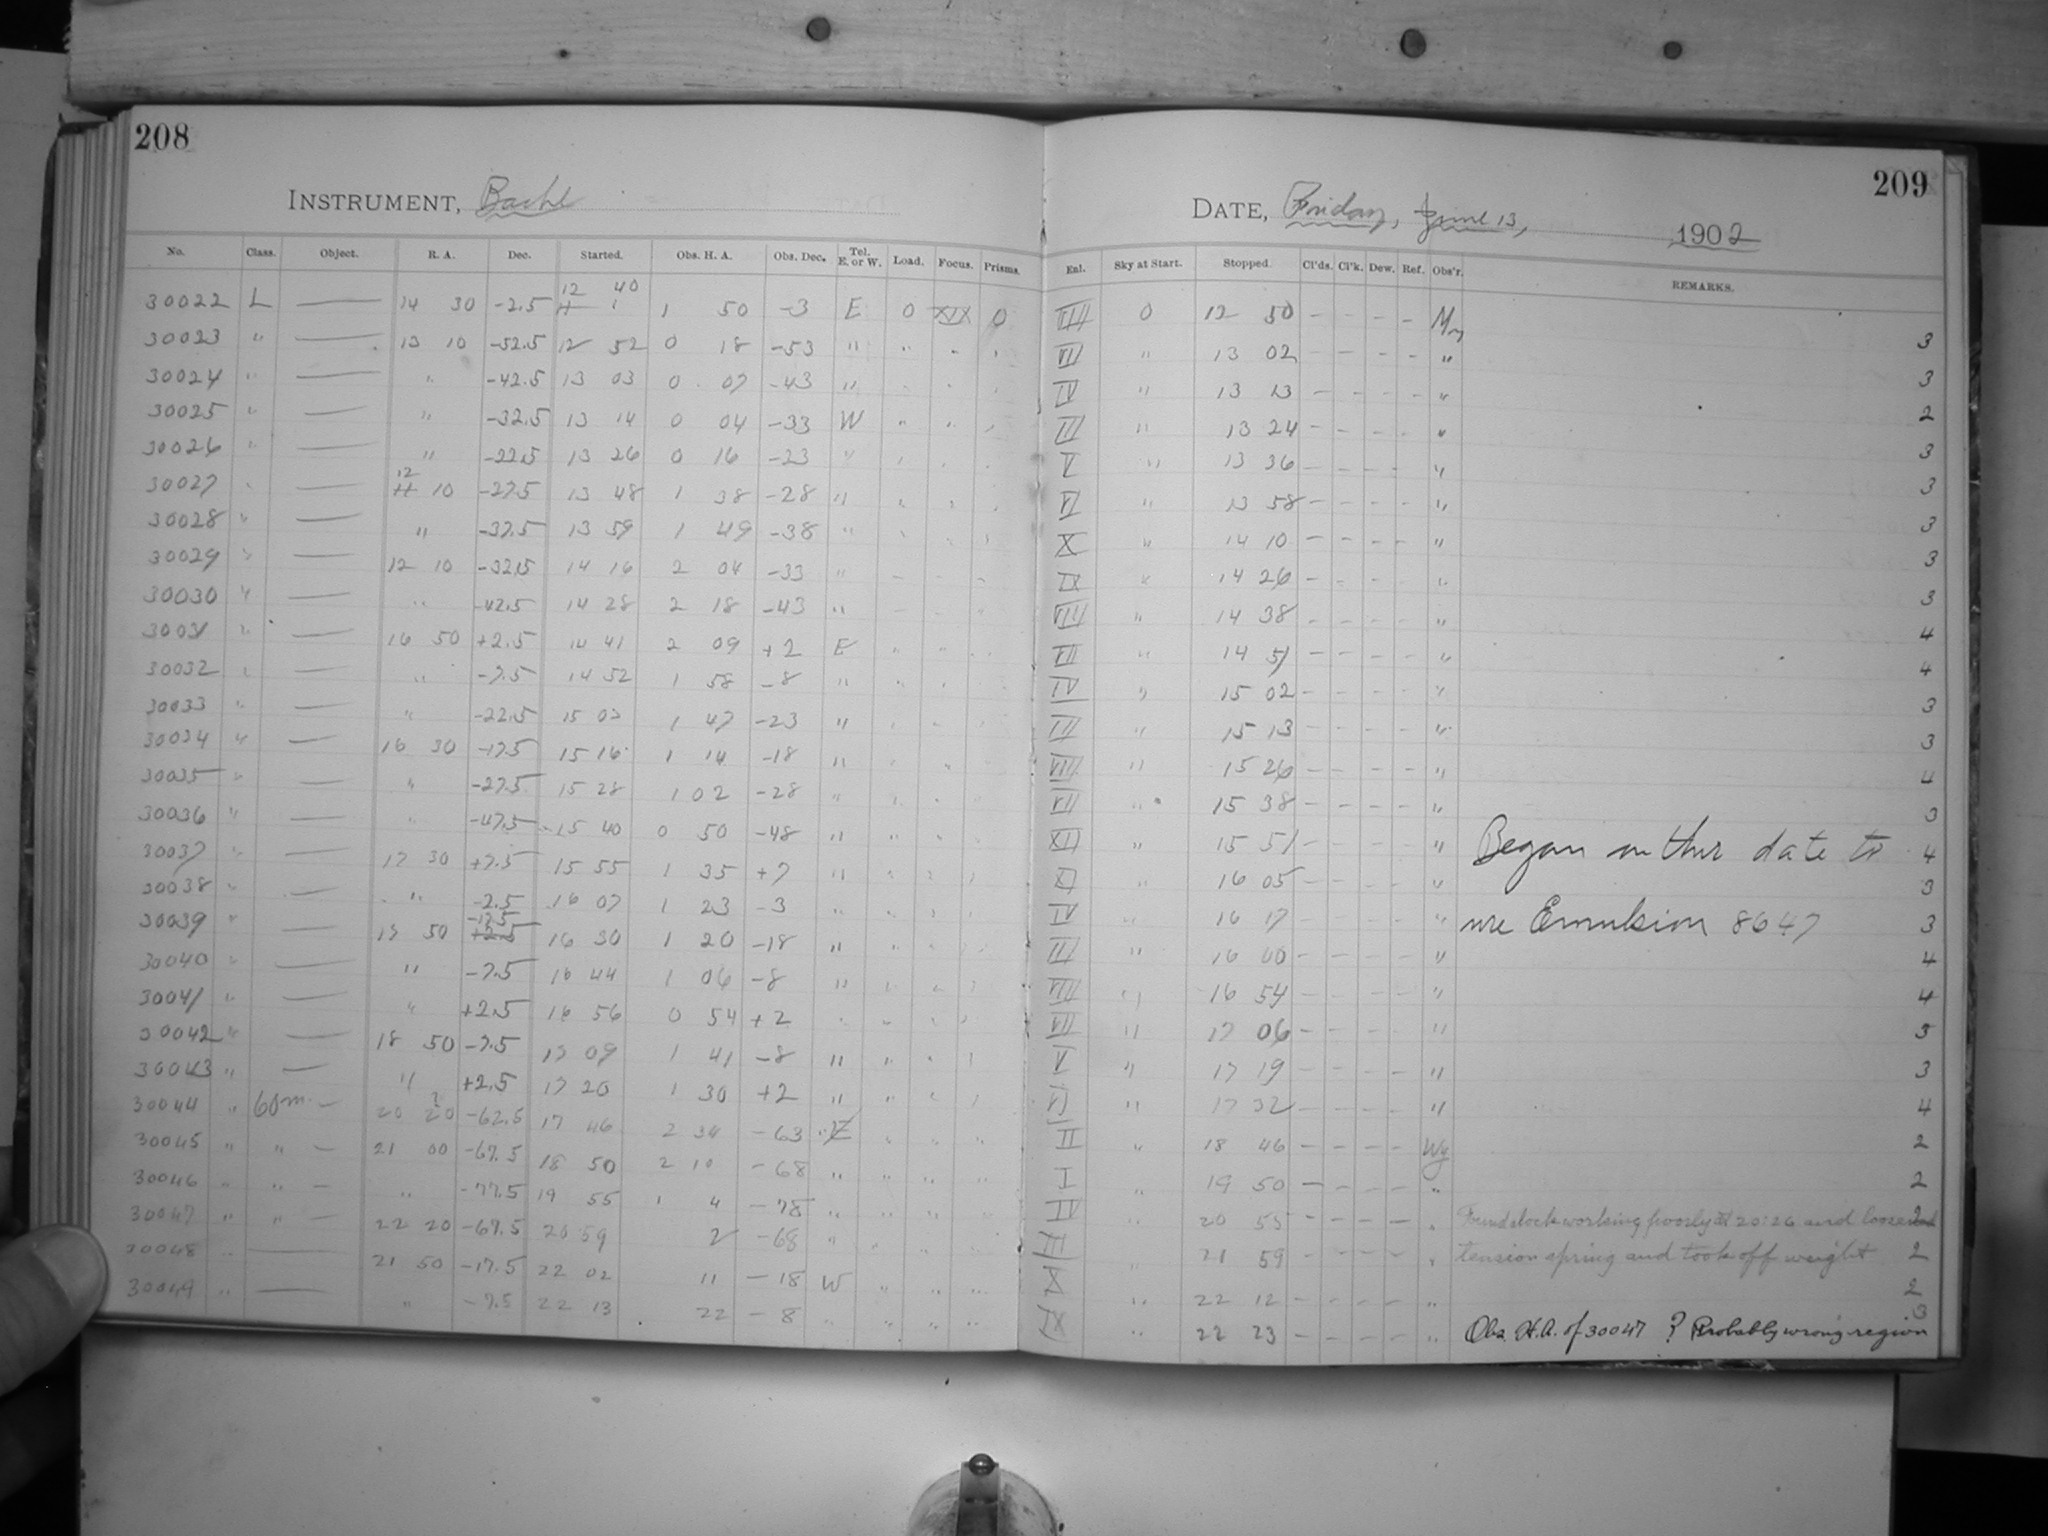 208
INSTRUMENT, Bache
No. Class. Object. R. A. Dec. Started. Obs. H. A. Obs. Dec. Tel. E. or W. Load. Focus. Prisms.
30022 L — 14 30 -2.5 12 40 1 50 -3 E 0 XIX 0
30023 " — 13 10 -52.5 12 52 0 18 -53 " " " "
30024 " — " -42.5 13 03 0 07 -43 " " " "
30025 " — " -32.5 13 14 0 04 -33 W " " "
30026 " — " -22.5 13 26 0 16 -23 " " " "
30027 " — 12 10 -27.5 13 48 1 38 -28 " " " "
30028 " — " -37.5 13 59 1 49 -38 " " " "
30029 " — 12 10 -32.5 14 16 2 04 -33 " " " "
30030 " — " -42.5 14 28 2 18 -43 " " " "
30031 " — 16 50 +2.5 14 41 2 09 +2 E " " "
30032 " — " -7.5 14 52 1 58 -8 " " " "
30033 " — " -22.5 15 03 1 47 -23 " " " "
30034 " — 16 30 -17.5 15 16 1 14 -18 " " " "
30035 " — " -27.5 15 28 1 02 -28 " " " "
30036 " — " -47.5 15 40 0 50 -48 " " " "
30037 " — 17 30 +7.5 15 55 1 35 +7 " " " "
30038 " — " -2.5 16 07 1 23 -3 " " " "
30039 " — 17 50 -17.5 +2.5 16 30 1 20 -18 " " " "
30040 " — " -7.5 16 44 1 06 -8 " " " "
30041 " — " +2.5 16 56 0 54 +2 " " " "
30042 " — 18 50 -7.5 17 09 1 41 -8 " " " "
30043 " — " +2.5 17 20 1 30 +2 " " " "
30044 " 60m — 20 20 -62.5 17 46 2 34 -63 E " " "
30045 " " — 21 00 -67.5 18 50 2 10 -68 " " " "
30046 " " — " -77.5 19 55 1 4 -78 " " " "
30047 " " — 22 20 -67.5 20 59 2 -68 " " " "
30048 " — 21 50 -17.5 22 02 11 -18 W " " "
30049 " — " -7.5 22 13 22 -8 " " " "
209
DATE, Friday, June 13, 1902
Enl. Sky at Start. Stopped. Cl'ds. Cl'k. Dew. Ref. Obs'r. REMARKS.
0 12 50 - - - - My 3
VI " 13 02 - - - - " 3
IV " 13 13 - - - - " 2
III " 13 24 - - - - " 3
V " 13 36 - - - - " 3
VI " 13 58 - - - - " 3
X " 14 10 - - - - " 3
IX " 14 26 - - - - " 3
VIII " 14 38 - - - - " 4
VII " 14 51 - - - - " 4
IV " 15 02 - - - - " 3
III " 15 13 - - - - " 3
VIII " 15 26 - - - - " 4
VII " 15 38 - - - - " 3
XI " 15 51 - - - - " Began on this date to 4
" 16 05 - - - - " 3
IV " 16 17 - - - - " use Emulsion 8647 3
III " 16 40 - - - - " 4
VIII " 16 54 - - - - " 4
VII " 17 06 - - - - " 3
V " 17 19 - - - - " 3
" 17 32 - - - - " 4
II " 18 46 - - - - Wy 2
I " 19 50 - - - - " 2
" 20 55 - - - - " Found clock working poorly at 20:26 and loosened 2
III " 21 59 - - - - " tension spring and took off weight 2
X " 22 12 - - - - " 2
IX " 22 23 - - - - " 3
Obs. H.A. of 30047 ? Probably wrong region